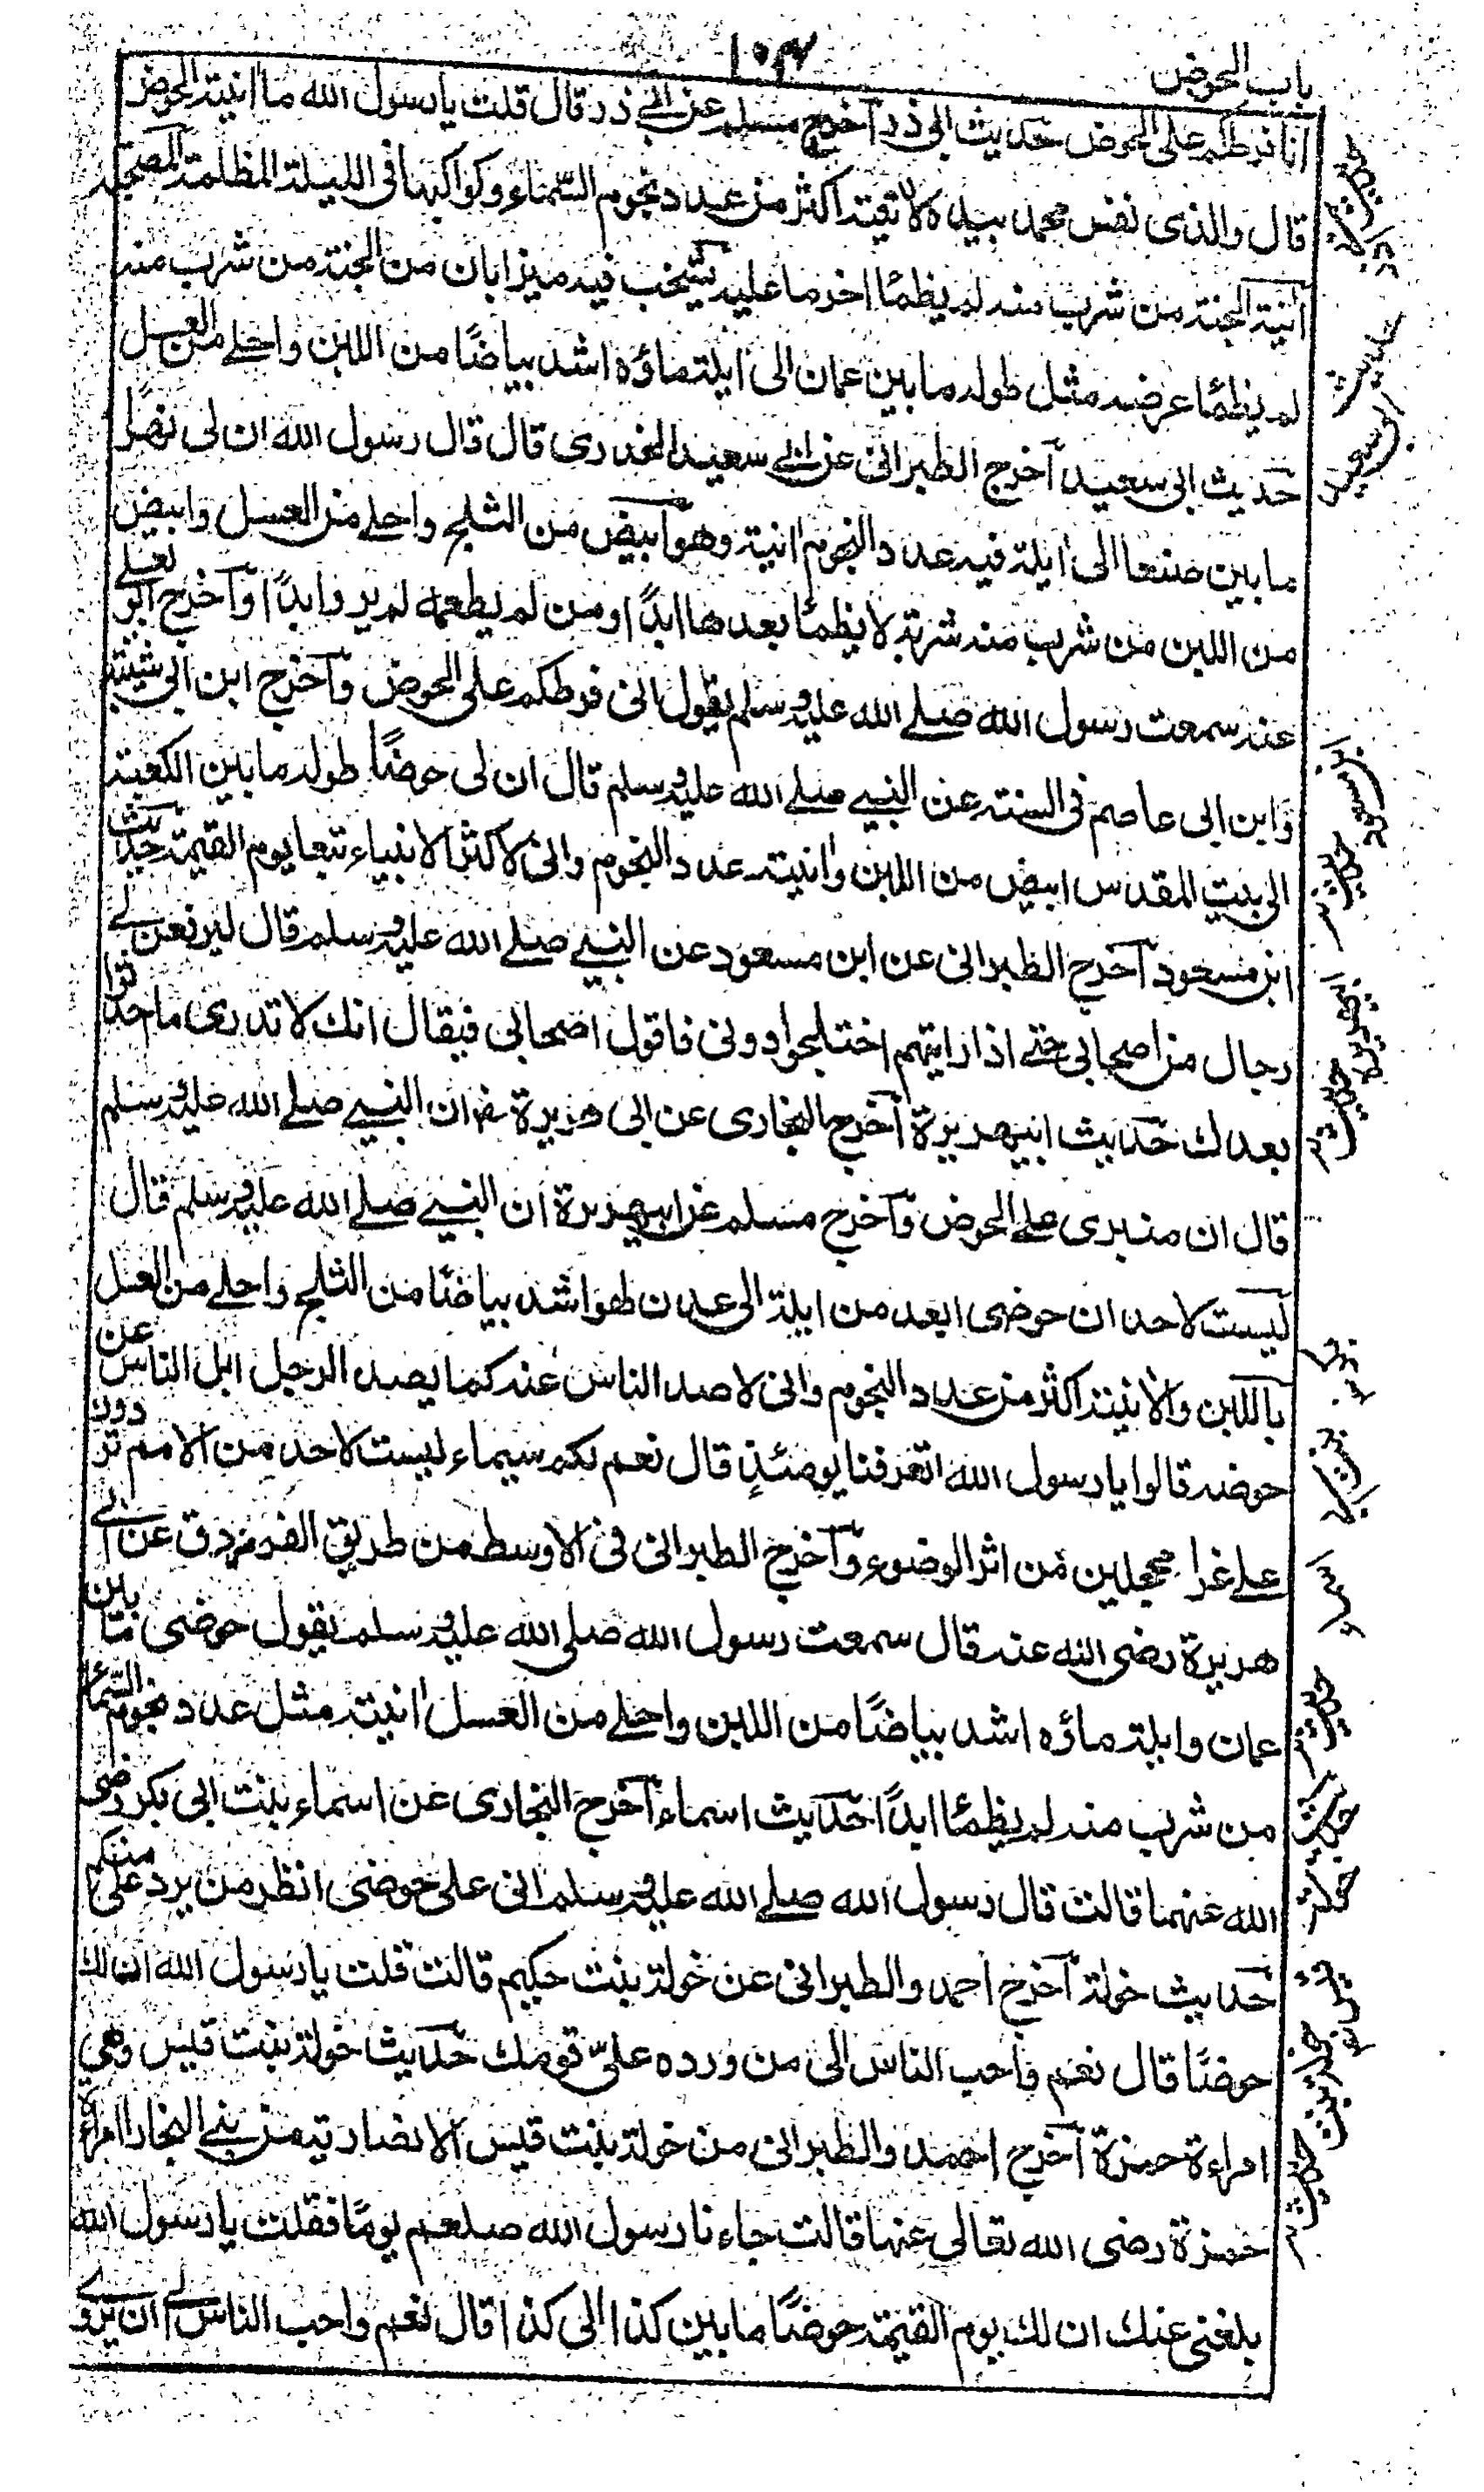 باب الحوض
١٠٤
انا فرطكم على الحوض حديث ابى ذر اخرج مسلم عن ابى ذر قال قلت يا رسول الله ما انية الحوض
قال والذى نفس محمد بيده لانيته اكثر من عدد نجوم السماء وكواكبها فى الليلة المظلمة المصحية
انية الجنة من شرب منه لم يظمأ اخر ما عليه يشخب فيه ميزابان من الجنة من شرب منه
لم يظمأ عرضه مثل طوله ما بين عمان الى ايلة ماؤه اشد بياضًا من اللبن واحلے من العسل
حديث ابى سعيد اخرج الطبرانى عن ابى سعيد الخدرى قال قال رسول الله ان لى نهرا
ما بين صنعا الى ايلة فيه عدد النجوم انية وهو ابيض من الثلج واحلے من العسل وابيض
من اللبن من شرب منه شربة لا يظمأ بعدها ابدًا ومن لم يطعمه لم يرو ابدًا واخرج ابو يعلے
عنه سمعت رسول الله صلے الله عليه وسلم يقول انى فرطكم على الحوض واخرج ابن ابى شيبة
وابن ابى عاصم فى السنة عن النبے صلے الله عليه وسلم قال ان لى حوضًا طوله ما بين الكعبة
الى بيت المقدس ابيض من اللبن وانيته عدد النجوم وانى لاكثر الانبياء تبعا يوم القيمة حديث
ابن مسعود اخرج الطبرانى عن ابن مسعود عن النبے صلے الله عليه وسلم قال ليرفعن لے
رجال من اصحابى حتے اذا رايتهم اختلجوا دونى فاقول اصحابى فيقال انك لا تدرى ما احدثوا
بعدك حديث ابيهريرة اخرج البخارى عن ابى هريرة ان النبے صلے الله عليه وسلم
قال ان منبرى علے الحوض واخرج مسلم عن ابيهريرة ان النبے صلے الله عليه وسلم قال
ليست لاحد ان حوضى ابعد من ايلة الى عدن لهو اشد بياضًا من الثلج واحلے من العسل
باللبن والانيته اكثر من عدد النجوم وانى لاصد الناس عنه كما يصد الرجل ابل الناس عن
حوضه قالوا يا رسول الله اتعرفنا يومئذٍ قال نعم لكم سيماء ليست لاحد من الامم تردون
علے غرا محجلين من اثر الوضوء واخرج الطبرانى فى الاوسط من طريق الفرزدق عن ابے
هريرة رضى الله عنه قال سمعت رسول الله صلى الله عليه وسلم يقول حوضى ما بين
عمان وايلة ماؤه اشد بياضًا من اللبن واحلے من العسل انيته مثل عدد نجوم السماء
من شرب منه لم يظمأ ابدًا حديث اسماء اخرج البخارى عن اسماء بنت ابى بكر رضى
الله عنهما قالت قال رسول الله صلے الله عليه وسلم انى على حوضى انظر من يرد على منكم
حديث خولة اخرج احمد والطبرانى عن خولة بنت حكيم قالت قلت يا رسول الله ان لك
حوضًا قال نعم واحب الناس الى من ورده علىّ قومك حديث خولة بنت قيس وهى
امراءة حمزة اخرج احمد والطبرانى من خولة بنت قيس الانصارية من بنے النجار امراة
حمزة رضى الله تعالى عنها قالت جاءنا رسول الله صلعم يومًا فقلت يا رسول الله
بلغنى عنك ان لك يوم القيمة حوضًا ما بين كذا الى كذا قال نعم واحب الناس لے ان يرو
حديث
ابو سعيد
حديث
ابن مسعود
حديث
ابيهريرة
حديث
حديث
خولة
حديث
خولة بنت